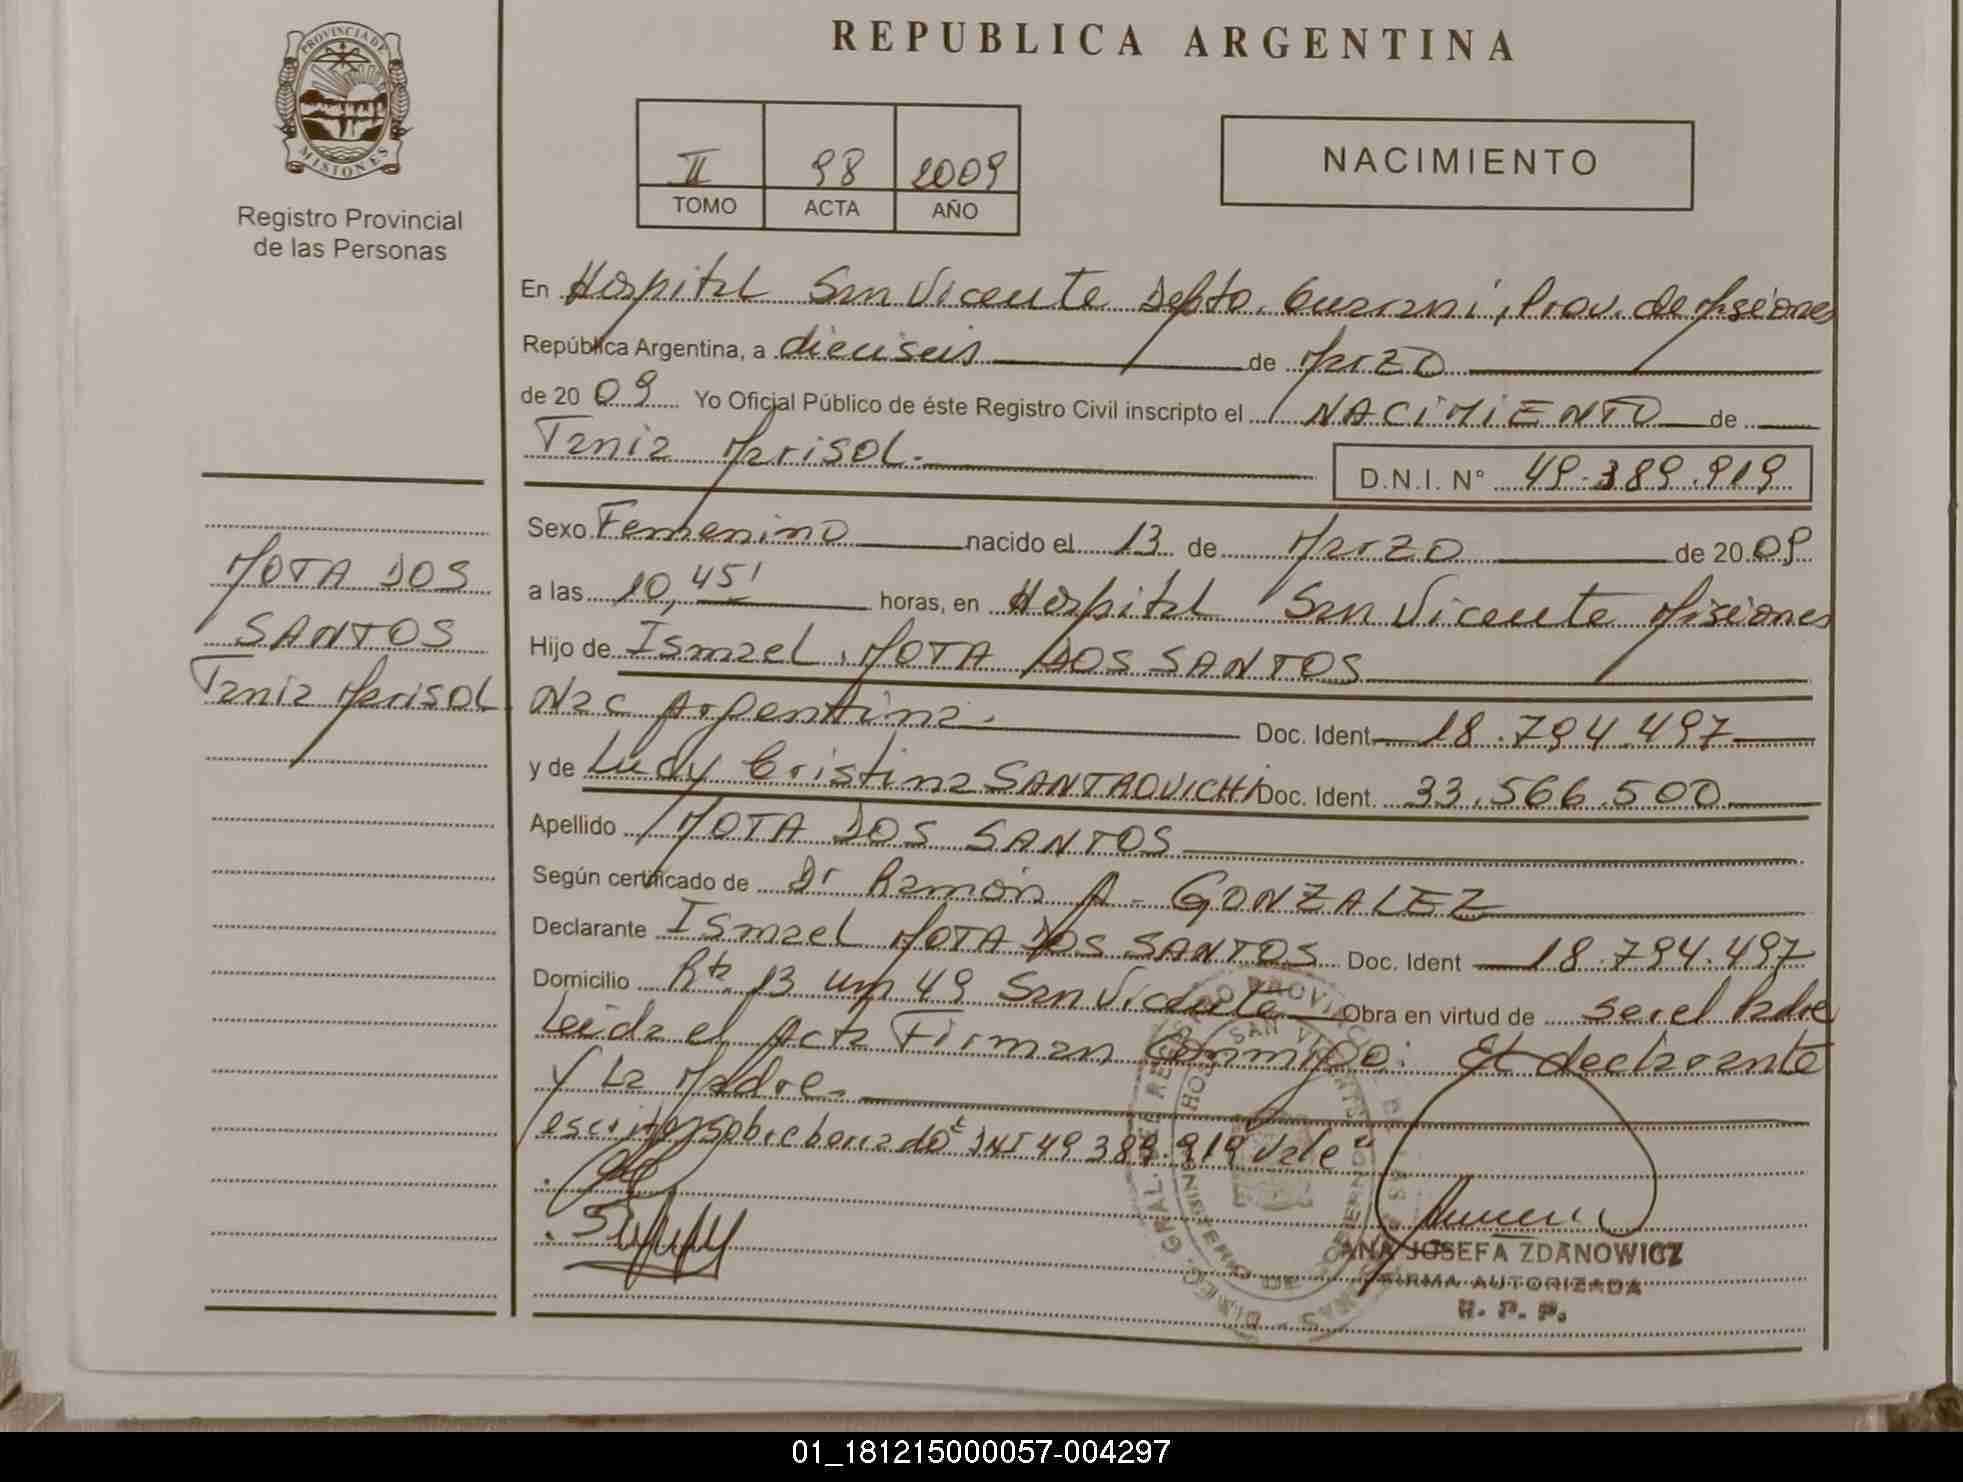 PROVINCIA DE
MISIONES
Registro Provincial
de las Personas
REPUBLICA ARGENTINA
II 98 2009
TOMO ACTA AÑO
NACIMIENTO
En Hospital San Vicente Depto. Guarani, Prov. de Misiones
República Argentina, a dieciseis de Marzo
de 20 09 Yo Oficial Público de éste Registro Civil inscripto el NACIMIENTO de
Tania Marisol.
D.N.I. N° 49.389.919
Sexo Femenino nacido el 13 de Marzo de 20 09
a las 10,45' horas, en Hospital San Vicente Misiones
Hijo de Ismael MOTA DOS SANTOS
Nac Argentina. Doc. Ident. 18.794.497
y de Lucy Cristina SANTAOVICHI Doc. Ident. 33.566.500
Apellido MOTA DOS SANTOS
Según certificado de Dr Ramón A. GONZALEZ
Declarante Ismael MOTA DOS SANTOS Doc. Ident 18.794.497
Domicilio Rta 13 km 49 San Vicente Obra en virtud de ser el Padre
Leida el Acta Firman Conmigo: El declarante
y La Madre.
escrito sobreborrado "DNI 49389.919 Vale"
MOTA DOS
SANTOS
Tania Marisol
ANA JOSEFA ZDANOWICZ
FIRMA AUTORIZADA
R. P. P.
01_181215000057-004297